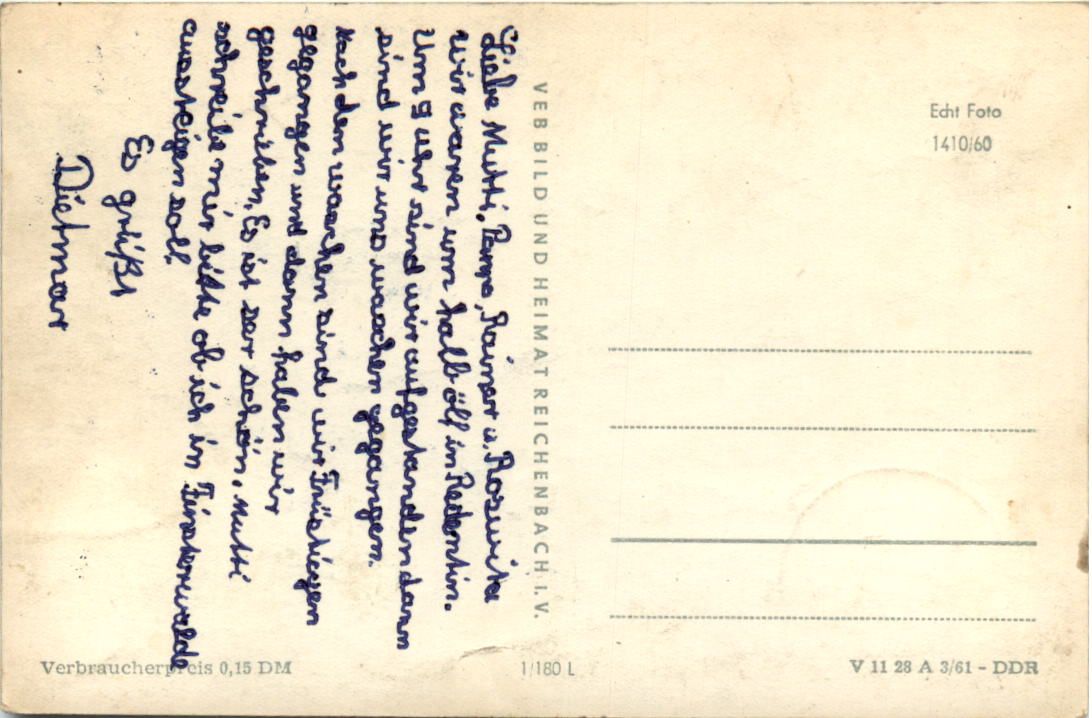 Liebe Mutti, Papa, Rainer u. Roswita
wir waren um halb ölf in Redentin.
Um 9 uhr sind wir aufgestanden dann
sind wir uns waschen gegangen.
Nach dem waschen sind wir Früstücgen
gegangen und dann haben wir
geschrieben. Es ist ser schön. Mutti
schreibe mir bitte ob ich in Finsterwalde
aussteigen soll.
Es grüßt
Dietmar
VEB BILD UND HEIMAT REICHENBACH I. V.
Echt Foto
1410/60
Verbraucherpreis 0,15 DM
1/180 L
V 11 28 A 3/61 - DDR